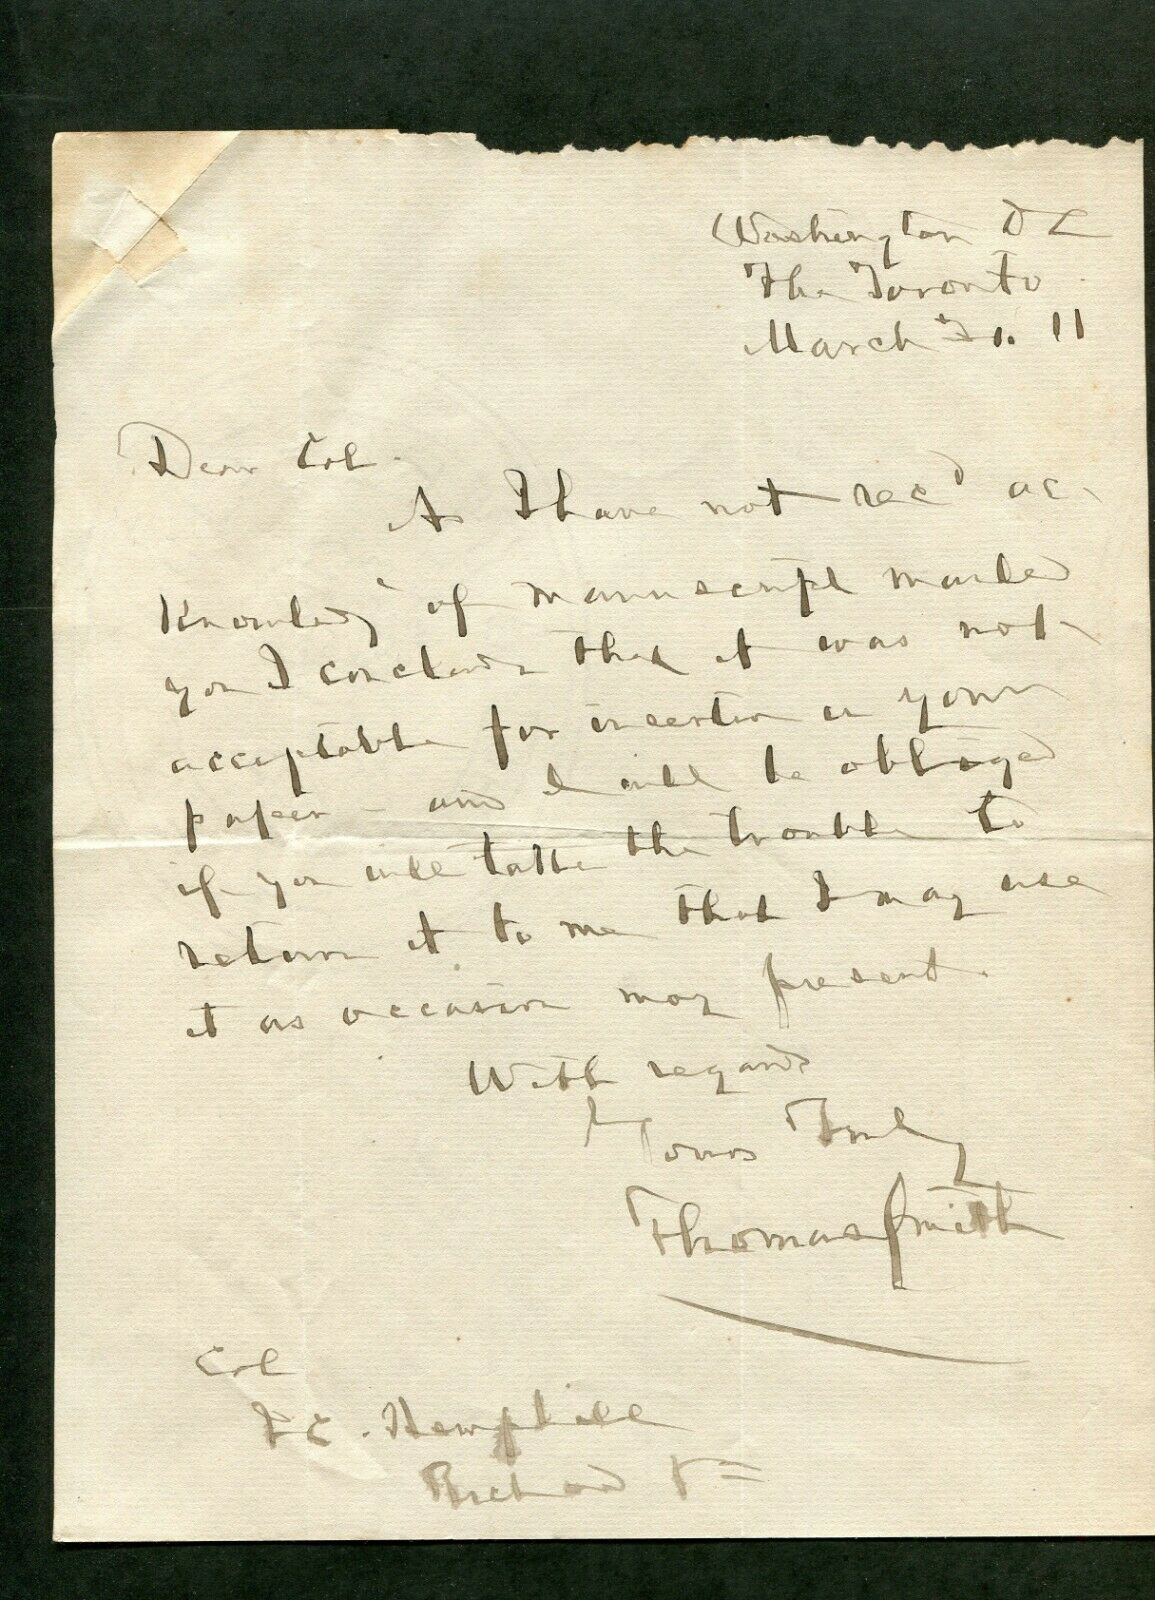 Washington DC
The Toronto
March 11
Dear Col.
As I have not rec'd ac-
knowledg' of manuscript mailed
you I conclude that it was not
acceptable for insertion in your
paper - and I will be obliged
if you will take the trouble to
return it to me that I may use
it as occasion may present.
With regards
Yours Truly
Thomas Smith
Col
J C. Hemphill
Richmond Va